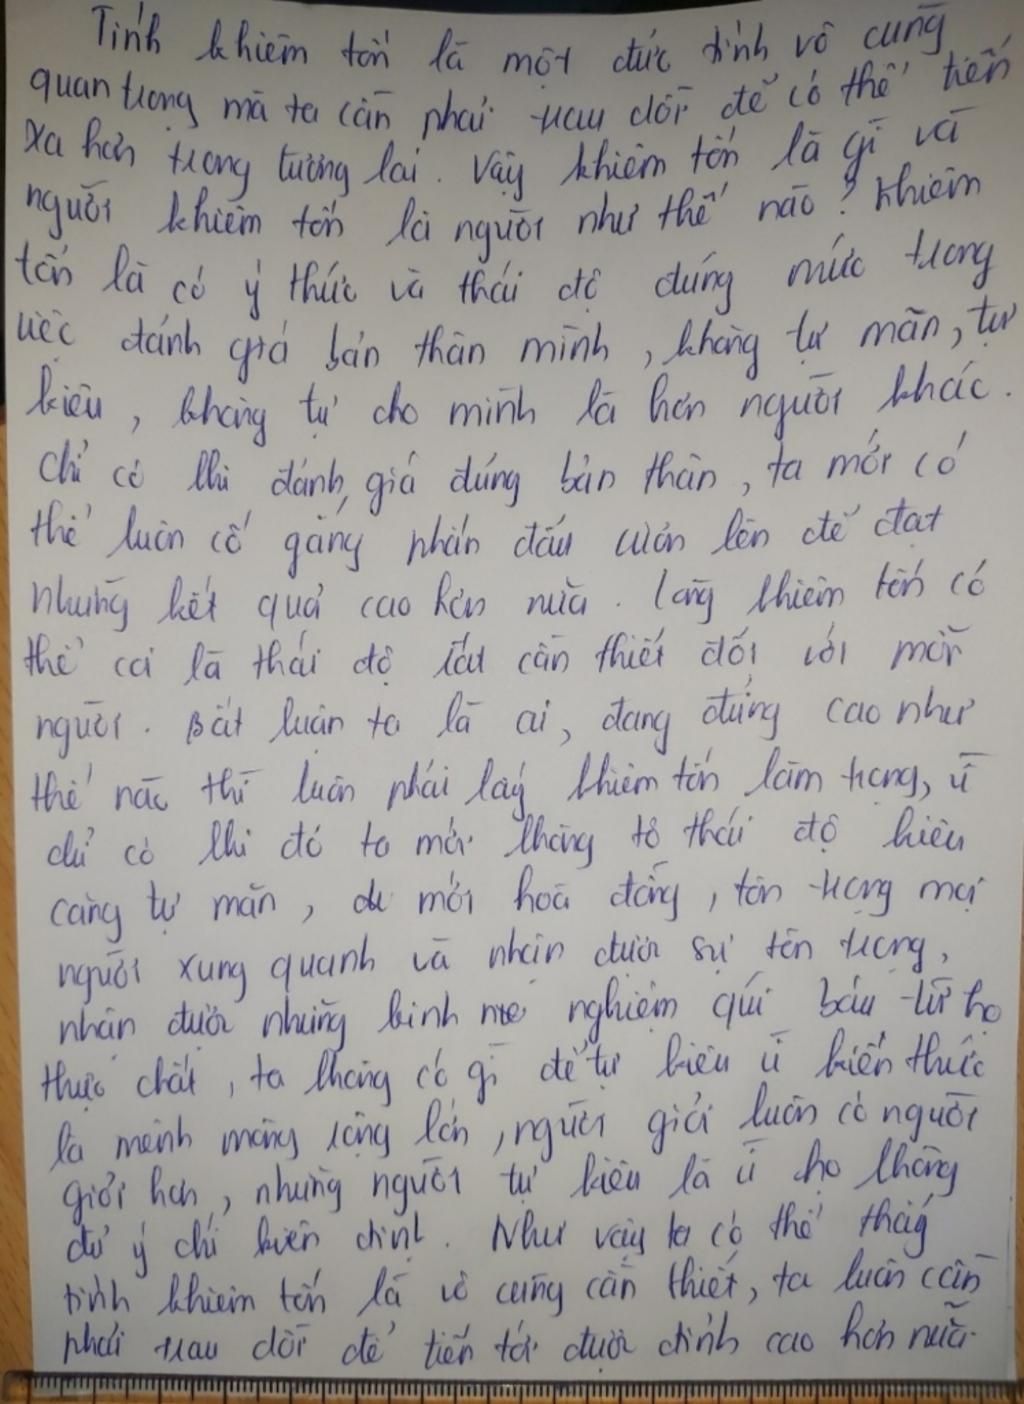 Tính khiêm tốn là một đức tính vô cùng
quan trọng mà ta cần phải trau dồi để có thể tiến
xa hơn trong tương lai. Vậy khiêm tốn là gì và
người khiêm tốn là người như thế nào? Khiêm
tốn là có ý thức và thái độ đúng mức trong
việc đánh giá bản thân mình, không tự mãn, tự
kiêu, không tự cho mình là hơn người khác.
Chỉ có khi đánh giá đúng bản thân, ta mới có
thể luôn cố gắng phấn đấu vươn lên để đạt
những kết quả cao hơn nữa. Lòng khiêm tốn có
thể coi là thái độ rất cần thiết đối với mỗi
người. Bất luận ta là ai, đang đứng cao như
thế nào thì luôn phải lấy khiêm tốn làm trọng, vì
chỉ có khi đó ta mới không tỏ thái độ kiêu
căng tự mãn, để mới hoà đồng, tôn trọng mọi
người xung quanh và nhận được sự tôn trọng,
nhận được những kinh nghiệm quí báu từ họ
thực chất, ta không có gì để tự kiêu vì kiến thức
là mênh mông rộng lớn, người giỏi luôn có người
giỏi hơn, những người tự kiêu là vì họ không
đủ ý chí kiên định. Như vậy ta có thể thấy
tính khiêm tốn là vô cùng cần thiết, ta luôn cần
phải trau dồi để tiến tới được đỉnh cao hơn nữa.